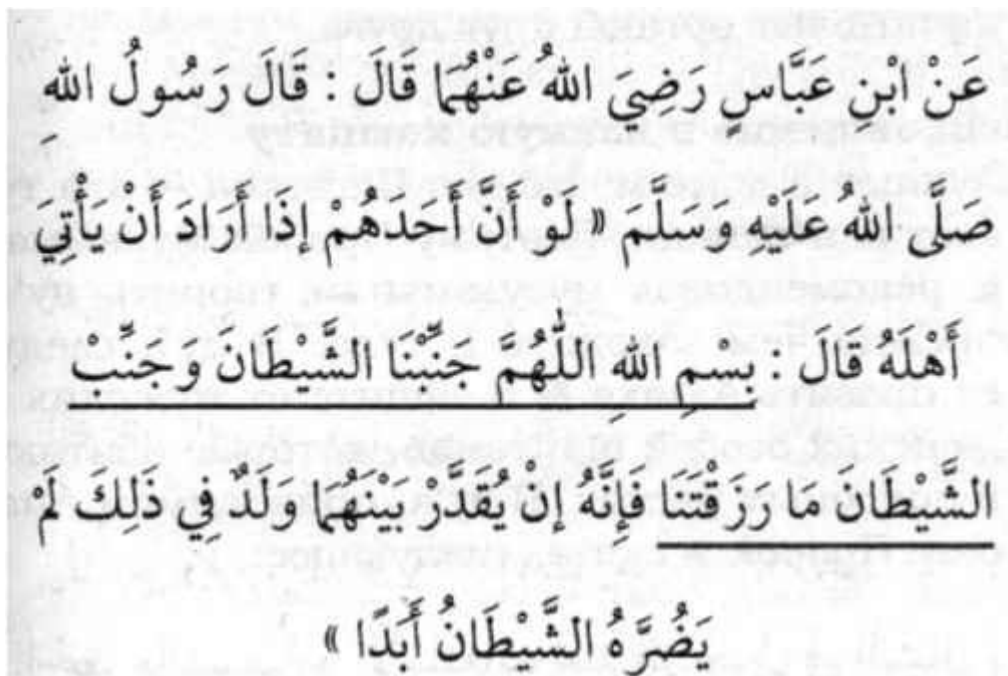 عَنْ ابْنِ عَبَّاسٍ رَضِيَ اللهُ عَنْهُمَا قَالَ : قَالَ رَسُولُ اللهِ
صَلَّى اللهُ عَلَيْهِ وَسَلَّمَ « لَوْ أَنَّ أَحَدَهُمْ إذَا أَرَادَ أَنْ يَأْتِيَ
أَهْلَهُ قَالَ : بِسْمِ اللهِ اللّٰهُمَّ جَنِّبْنَا الشَّيْطَانَ وَجَنِّبْ
الشَّيْطَانَ مَا رَزَقْتَنَا فَإِنَّهُ إنْ يُقَدَّرْ بَيْنَهُمَا وَلَدٌ فِي ذَلِكَ لَمْ
يَضُرَّهُ الشَّيْطَانُ أَبَدًا »